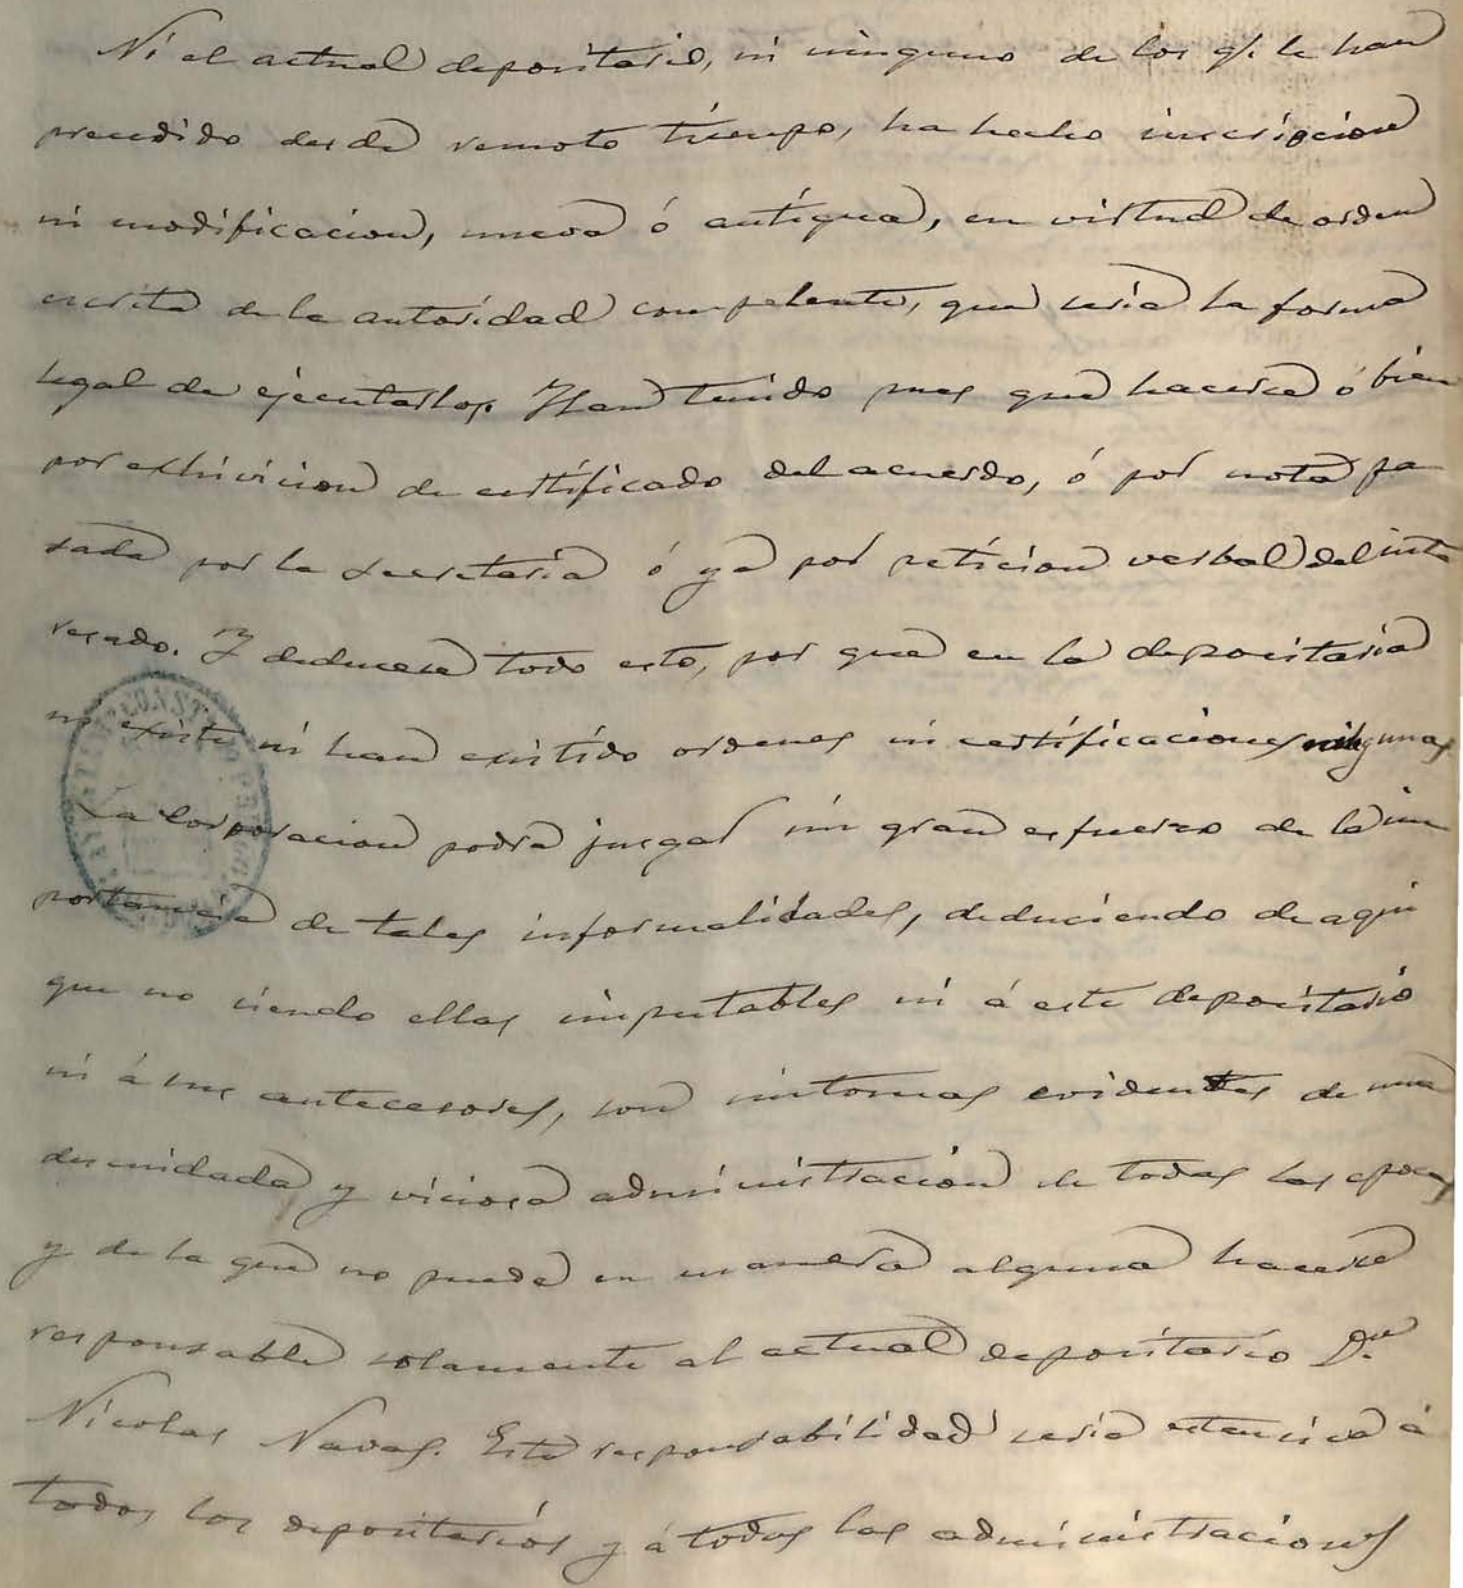 Ni el actual depositario, ni ninguno de los q/. le han
precedido desde remoto tiempo, ha hecho inscripcion
ni modificacion, nueva ó antigua, en virtud de orden
escrita de la autoridad competente, que seria la forma
legal de ejecutarlos. Han tenido pues que hacerse ó bien
por exhivicion de certificado del acuerdo, ó por nota pa
sada por la Secretaria ó ya por peticion verbal del inte
resado. Y deducese todo esto, por que en la depositaria
no existe ni han existido ordenes ni certificaciones ningunas
La Corporacion podrá juzgar sin gran esfuerzo de la im
portancia de tales informalidades, deduciendo de aqui
que no siendo ellas imputables ni á este depositario
ni á sus antecesores, son sintomas evidentes de una
descuidada y viciosa administracion de todas las epocas
y de la que no puede en manera alguna hacerse
responsable solamente al actual depositario D.n
Nicolas Navas. Esta responsabilidad seria estensiva á
todos los depositarios y á todas las administraciones